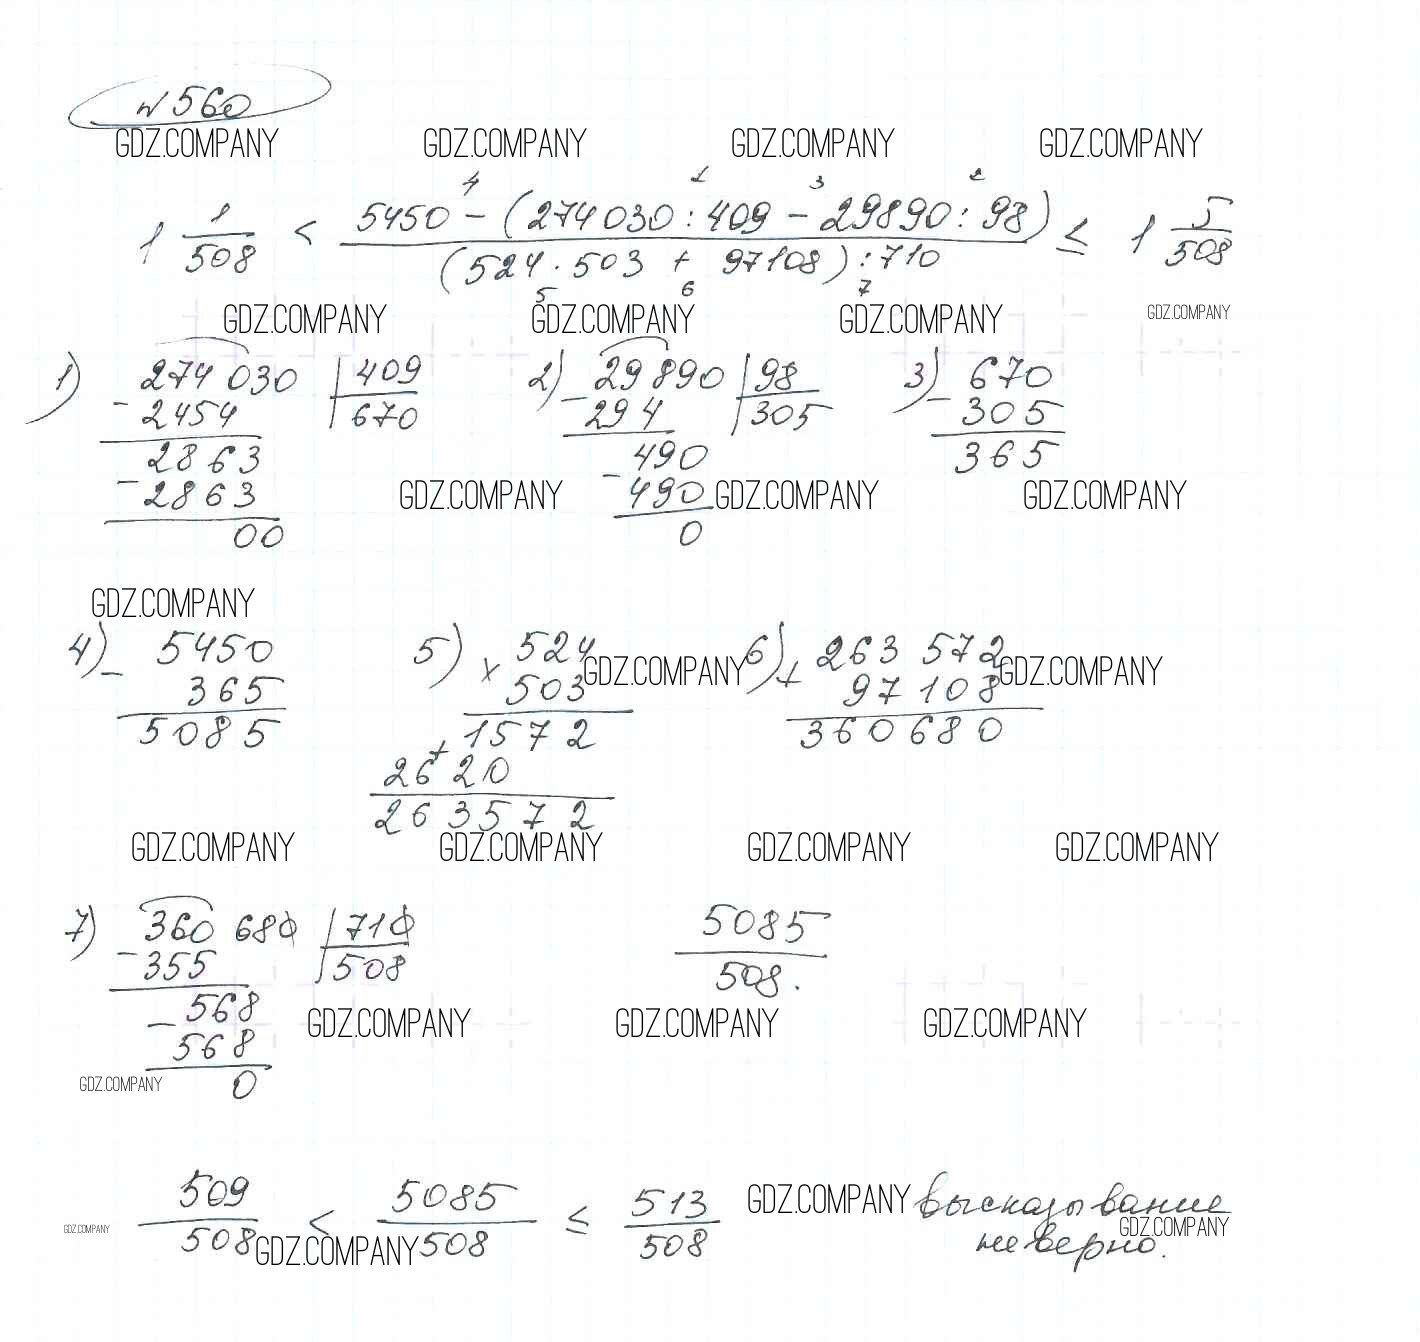 № 560
GDZ.COMPANY GDZ.COMPANY GDZ.COMPANY GDZ.COMPANY
4 1 3 2
1 1/508 < 5450 − (274030 : 409 − 29890 : 98) / (524 · 503 + 97108) : 710 ≤ 1 5/508
5 6 7
GDZ.COMPANY GDZ.COMPANY GDZ.COMPANY GDZ.COMPANY
1) 274 030 | 409 2) 29 890 | 98 3) 670
− 2454 | 670 − 294 | 305 − 305
2863 490 365
− 2863 − 490
GDZ.COMPANY GDZ.COMPANY GDZ.COMPANY
00 0
GDZ.COMPANY
4) − 5450 5) × 524 6) + 263 572
GDZ.COMPANY GDZ.COMPANY
365 503 97 108
5085 1572 360680
+ 2620
263572
GDZ.COMPANY GDZ.COMPANY GDZ.COMPANY GDZ.COMPANY
7) 360 680 | 710 5085/508.
− 355 | 508
568
GDZ.COMPANY GDZ.COMPANY GDZ.COMPANY
− 568
GDZ.COMPANY
0
509/508 < 5085/508 ≤ 513/508 высказывание
GDZ.COMPANY
GDZ.COMPANY GDZ.COMPANY GDZ.COMPANY
неверно.